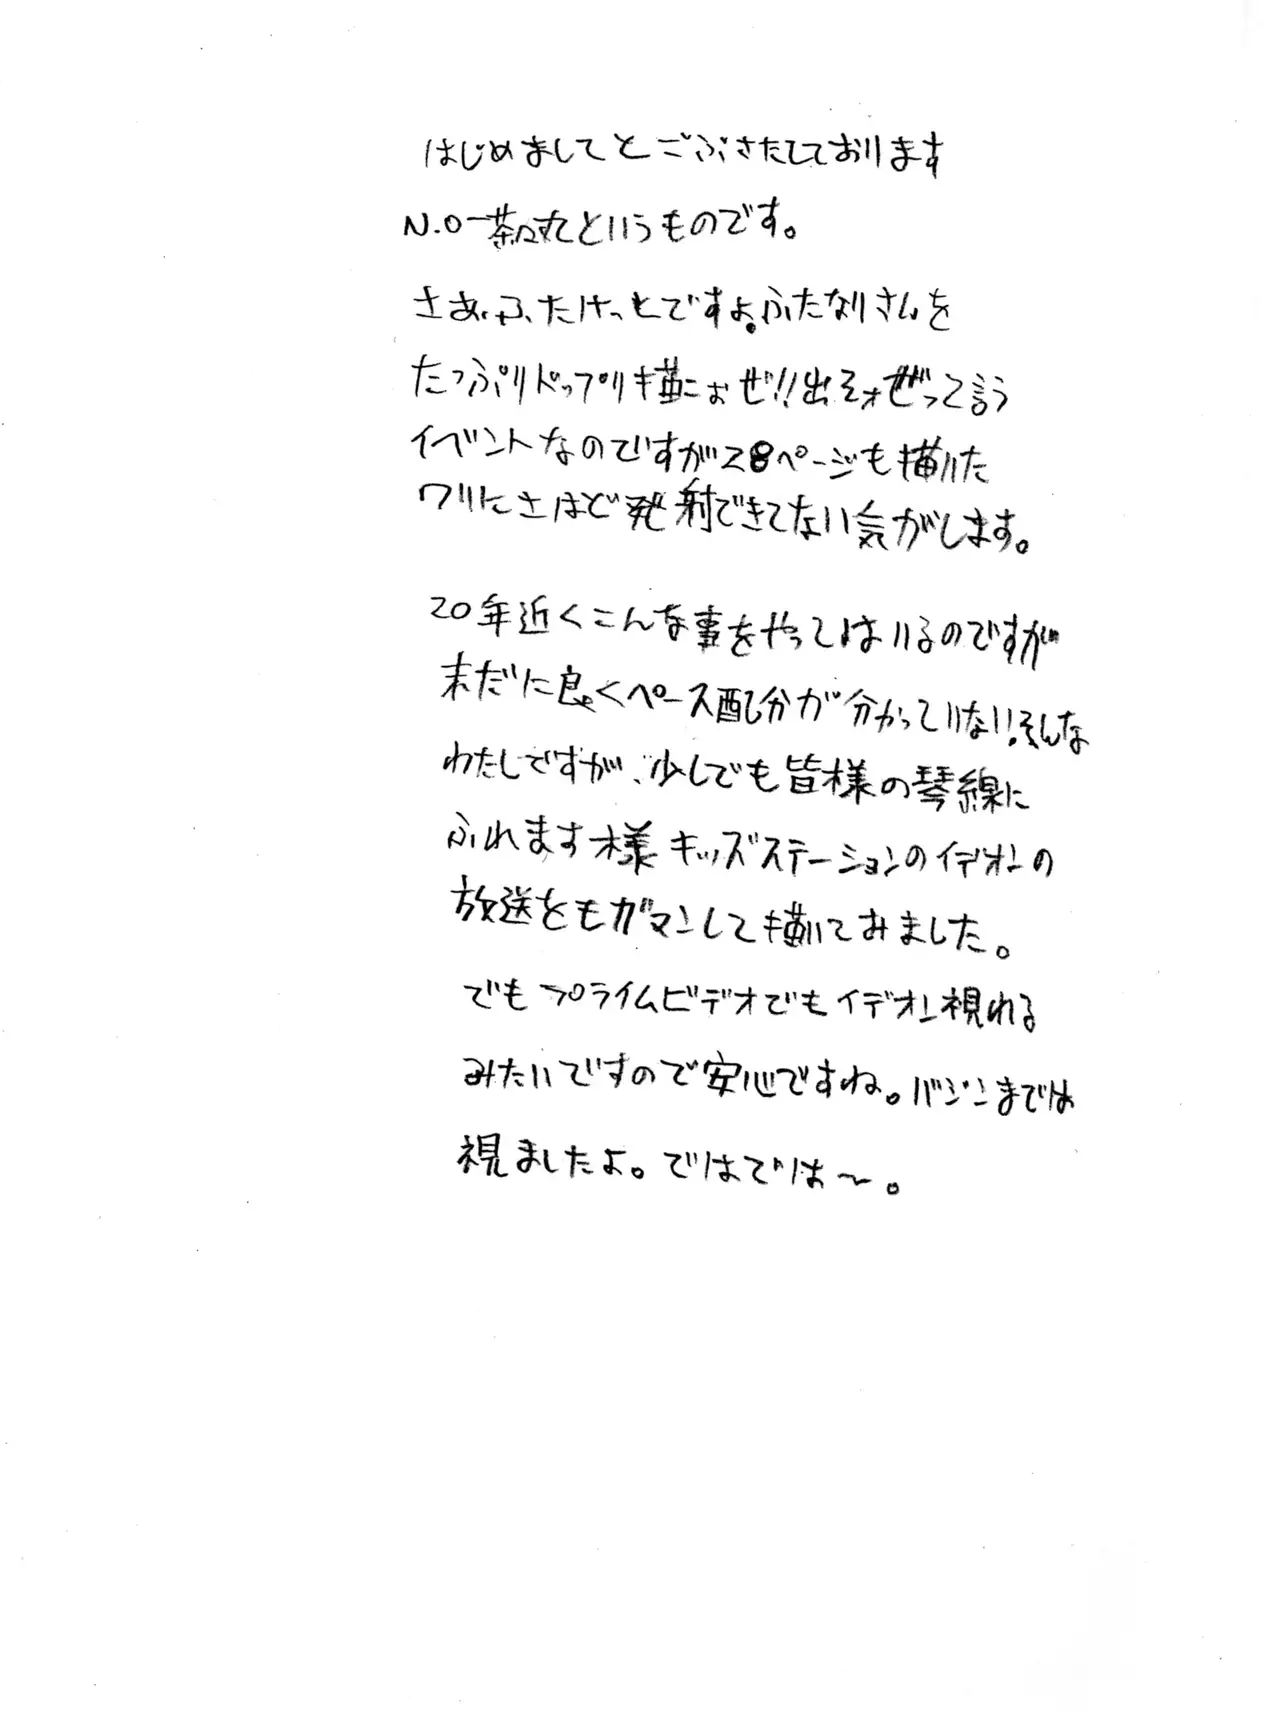 はじめましてとごぶさたしております
N.O-茶々丸というものです。
さあ、ふたけっとですよ。ふたなりさんを
たっぷりドップリ描こぉぜ!!出そォぜって言う
イベントなのですが28ページも描いた
ワリにさほど発射できてない気がします。
20年近くこんな事をやってはいるのですが
未だに良くペース配分が分かっていない。そんな
わたしですが、少しでも皆様の琴線に
ふれます様キッズステーションのイデオンの
放送をもガマンして描いてみました。
でもプライムビデオでもイデオン視れる
みたいですので安心ですね。バジンまでは
視ましたよ。ではでは〜。